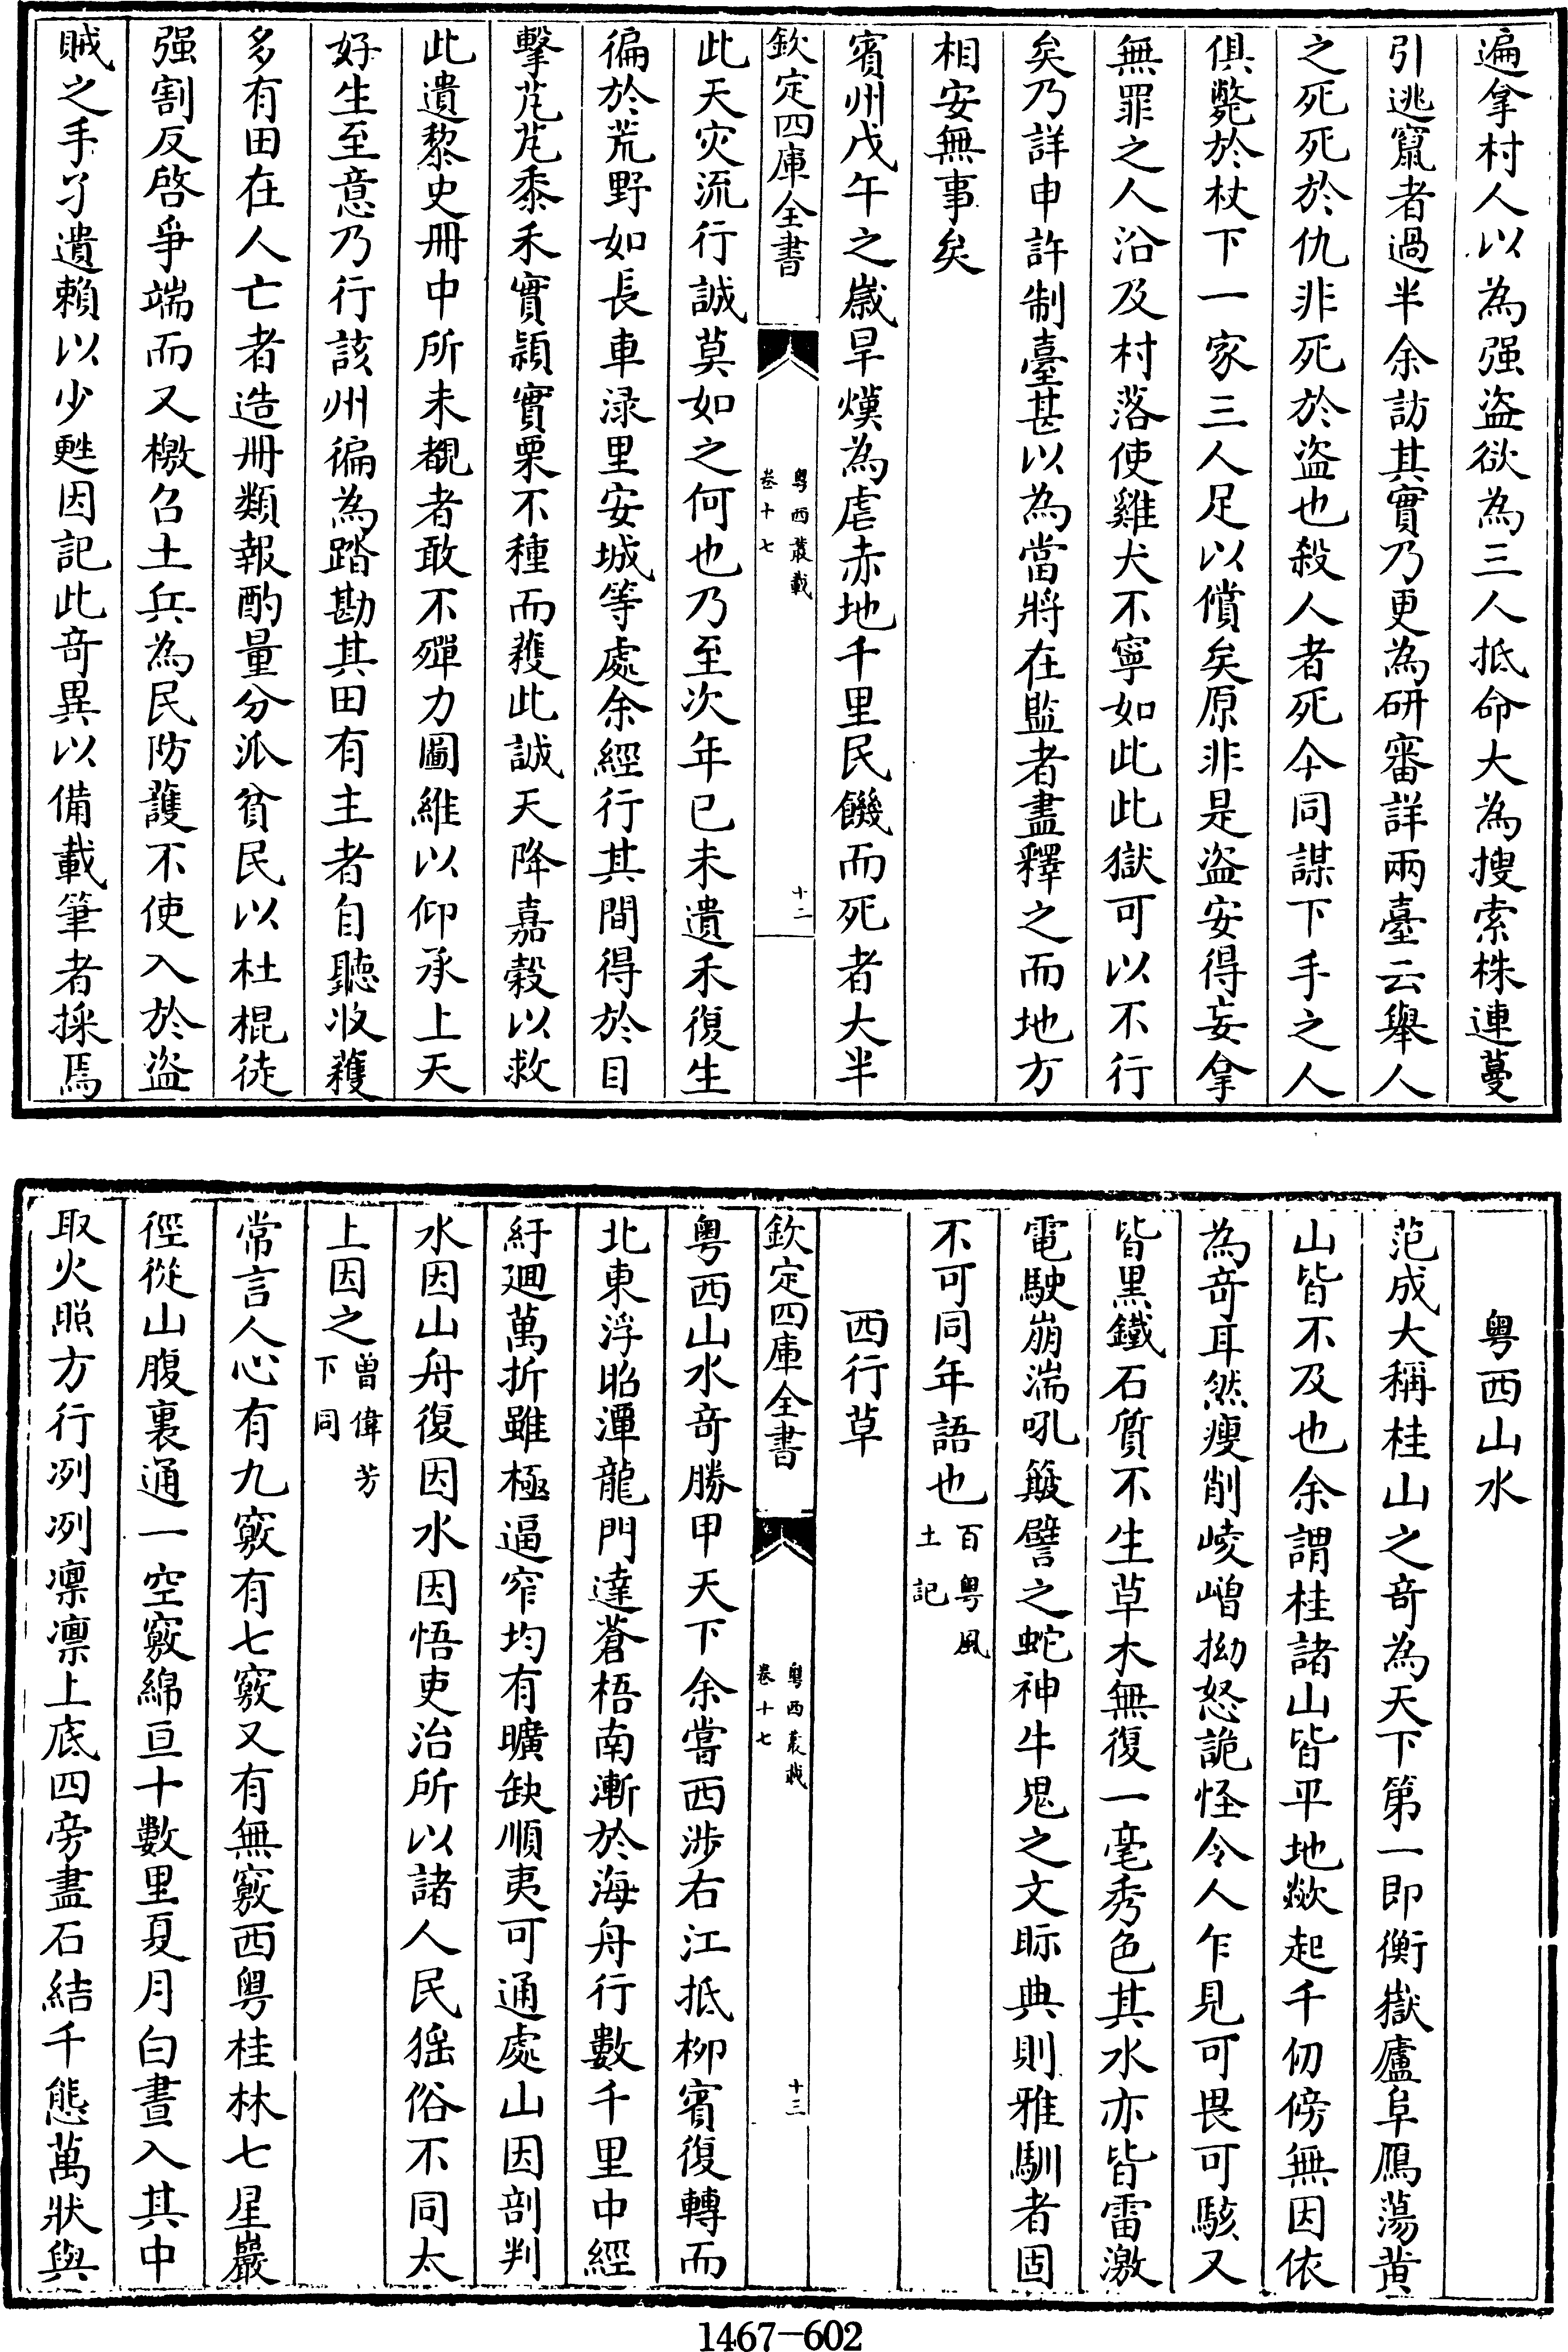 遍拿村人以為强盗欲為三人抵命大為搜索株連蔓
引逃竄者過半余訪其實乃更為研審詳兩臺云舉人
之死死於仇非死於盗也殺人者死今同謀下手之人
俱斃於杖下一家三人足以償矣原非是盗安得妄拿
無罪之人沿及村落使雞犬不寧如此此獄可以不行
矣乃詳申許制臺甚以為當將在監者盡釋之而地方
相安無事矣
賓州戊午之歲旱熯為虐赤地千里民饑而死者大半
欽定四庫全書
粤西叢載
卷十七
十二
此天灾流行誠莫如之何也乃至次年已未遺禾復生
徧於荒野如長車渌里安城等處余經行其間得於目
擊芃芃黍禾實頴實栗不種而穫此誠天降嘉穀以救
此遺黎史冊中所未覩者敢不殫力圖維以仰承上天
好生至意乃行該州徧為踏勘其田有主者自聽收穫
多有田在人亡者造冊類報酌量分派貧民以杜棍徒
强割反啓爭端而又檄召土兵為民防護不使入於盗
賊之手孑遺賴以少甦因記此竒異以備載筆者採焉
粤西山水
范成大稱桂山之竒為天下第一即衡嶽廬阜鴈蕩黄
山皆不及也余謂桂諸山皆平地歘起千仞傍無因依
為竒耳然瘦削崚嶒拗怒詭怪令人乍見可畏可駭又
皆黑鐵石質不生草木無復一毫秀色其水亦皆雷激
電駛崩湍吼簸譬之蛇神牛鬼之文眎典則雅馴者固
不可同年語也百粤風土記
西行草
欽定四庫全書
粤西叢載
卷十七
十三
粤西山水竒勝甲天下余嘗西涉右江抵柳賓復轉而
北東浮昭潭龍門達蒼梧南漸於海舟行數千里中經
紆廻萬折雖極逼窄均有曠缺順夷可通處山因剖判
水因山舟復因水因悟吏治所以諸人民猺俗不同太
上因之曾偉芳下同
常言人心有九竅有七竅又有無竅西粤桂林七星巖
徑從山腹裏通一空竅綿亘十數里夏月白晝入其中
取火照方行冽冽凛凛上底四旁盡石結千態萬狀與
1467-602